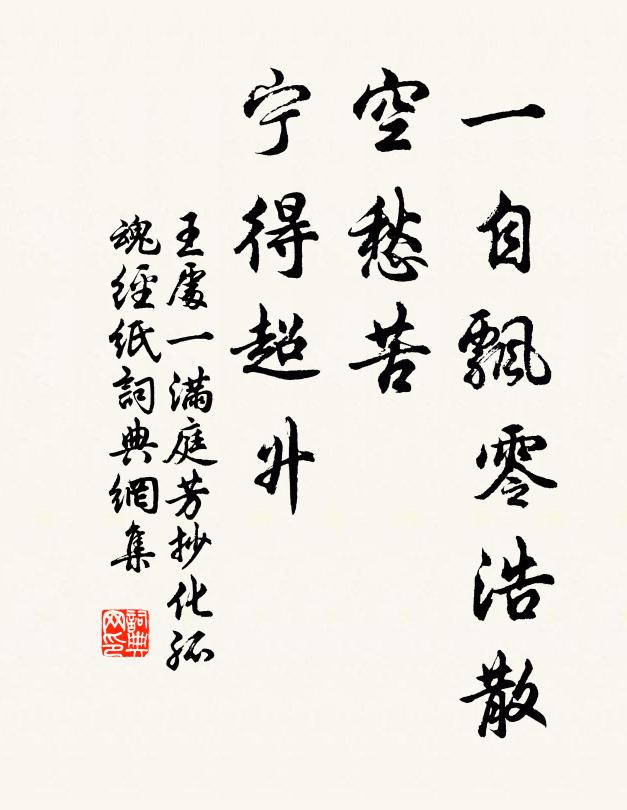 一自飄零浩散
空愁苦
宁得超升
王處一满庭芳抄化孤
魂經紙詞典網集
詞典
网印